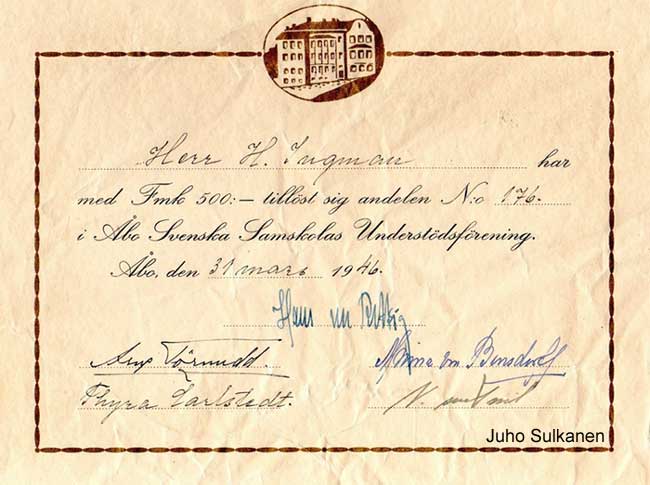 Herr H. Ingman har
med Fmk 500:— tillöst sig andelen N:o 176.
i Åbo Svenska Samskolas Understödsförening.
Åbo, den 31 mars 1946.
Hans von Rettig
Törnudd.
Thyra Carlstedt.
von Bonsdorff
Juho Sulkanen